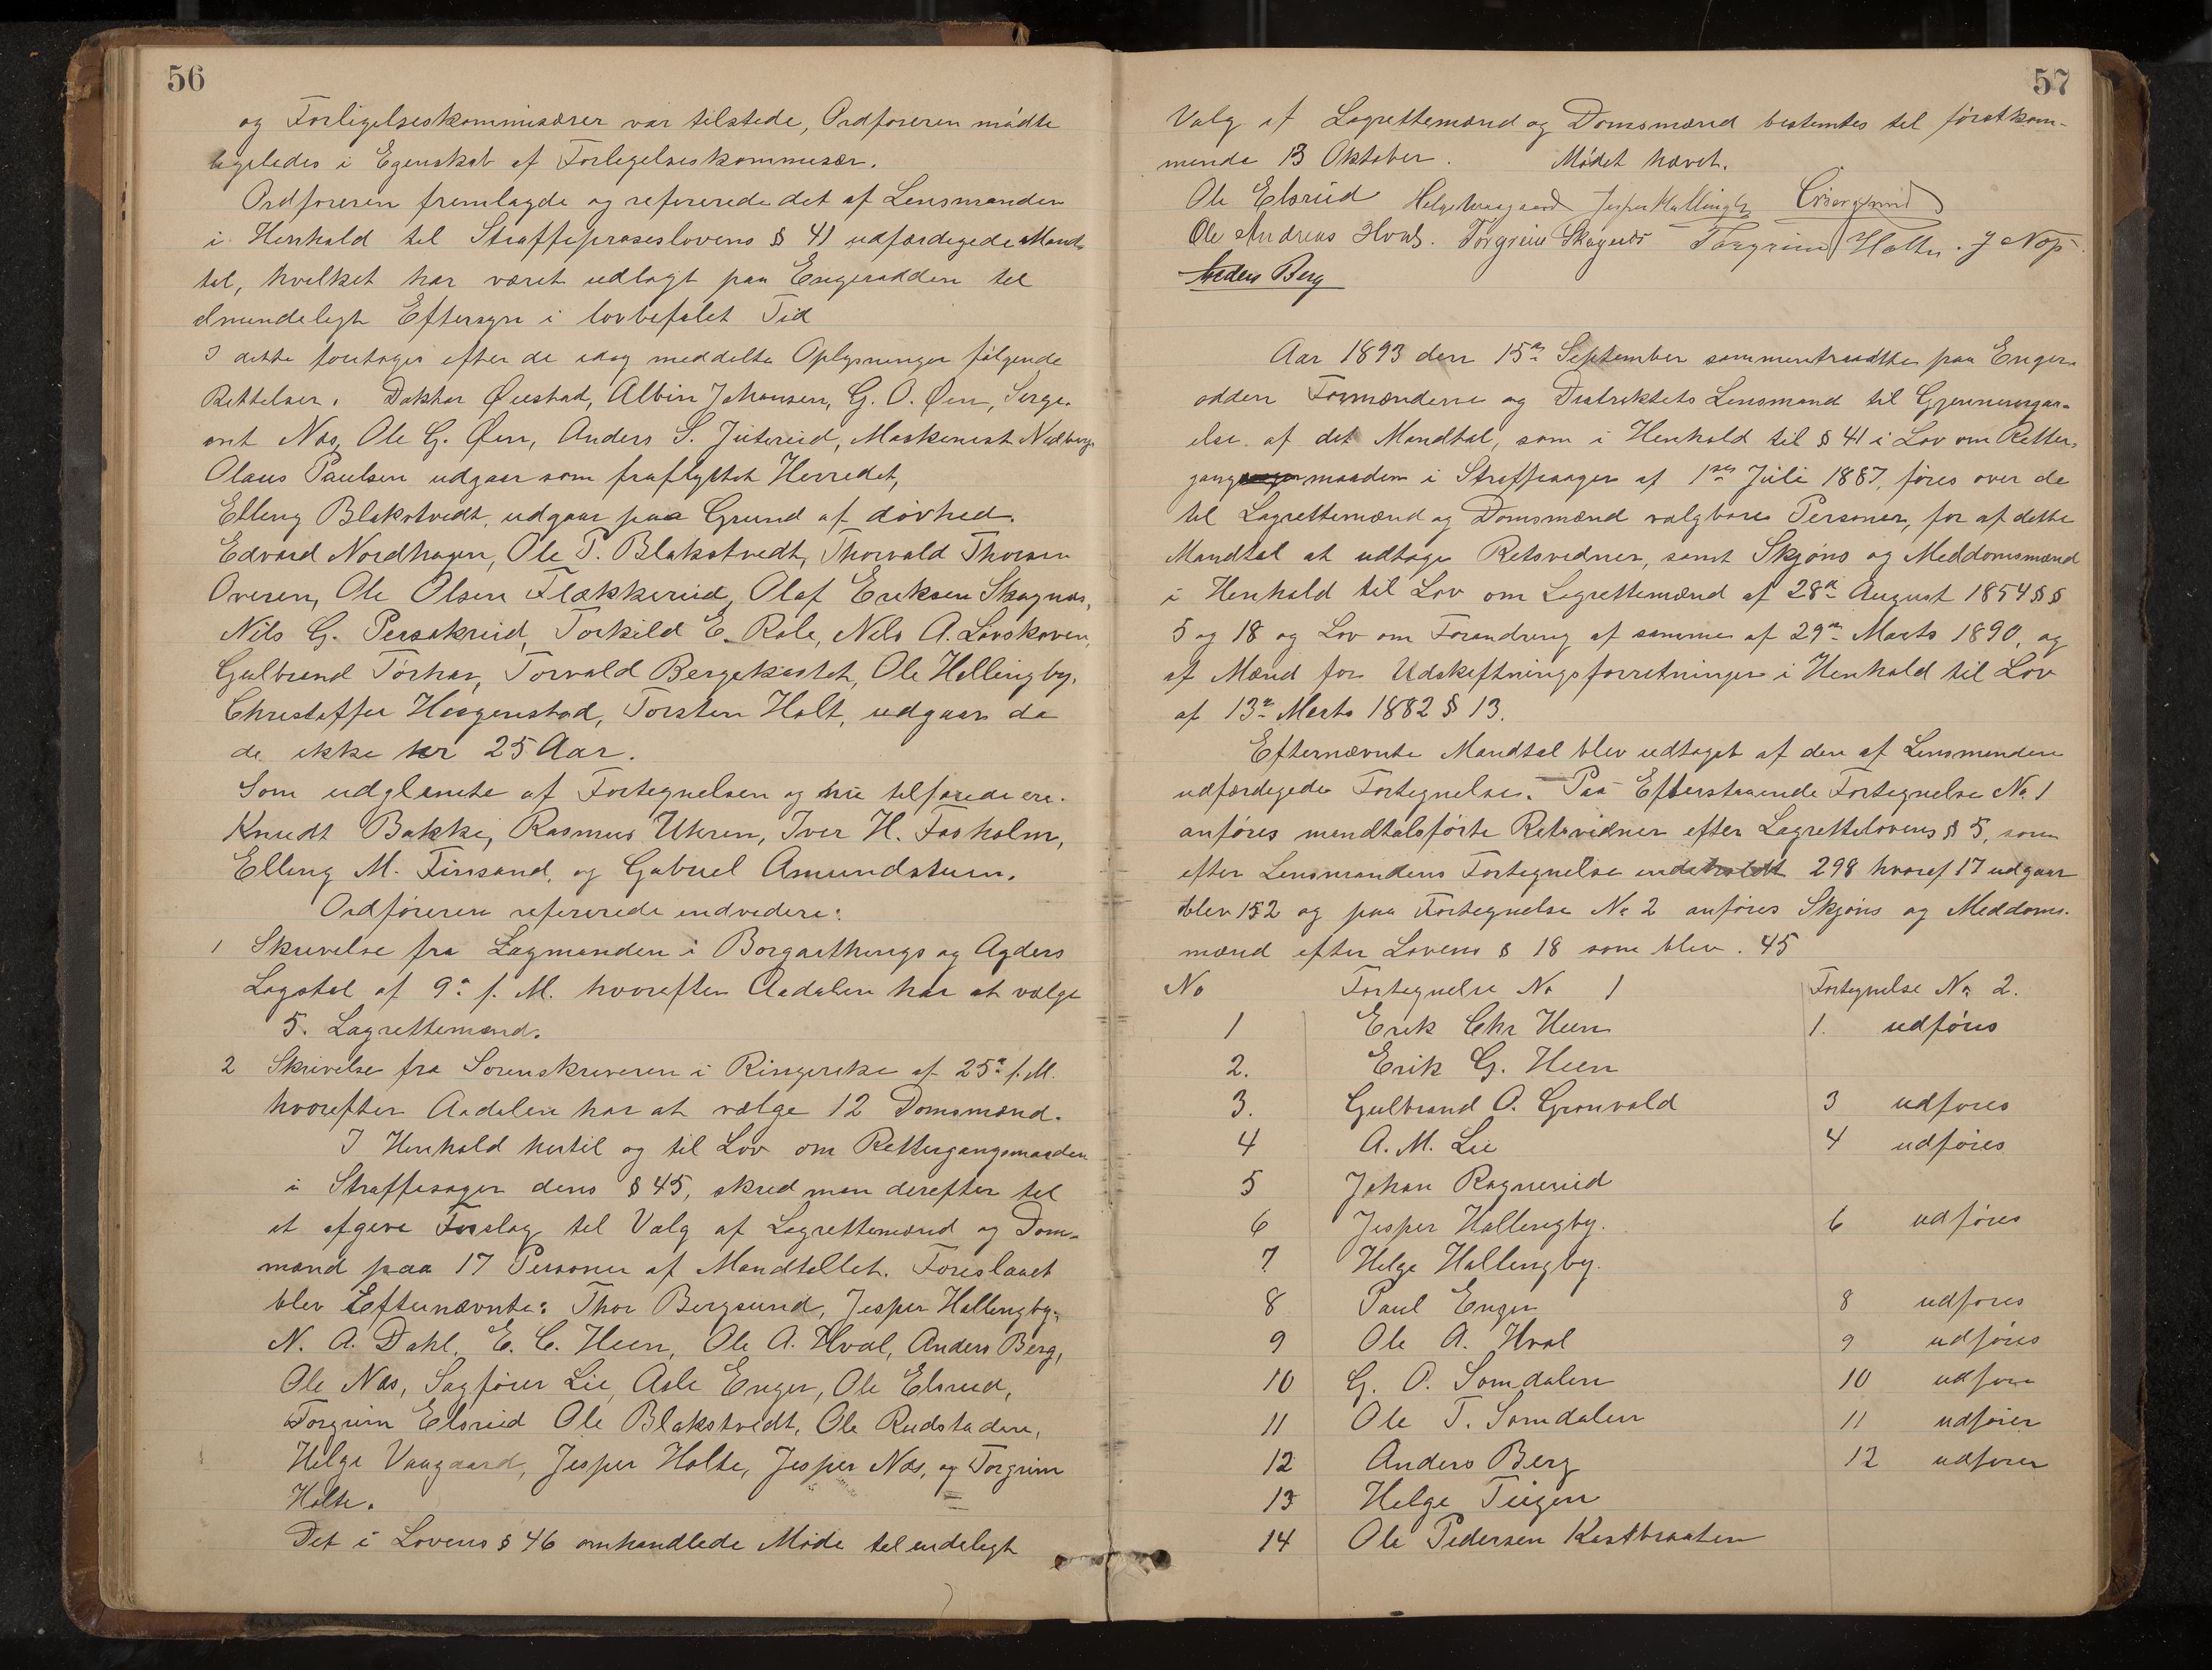 56
og Forligelseskommisærer var tilstede, Ordføreren mødte
ligeledes i Egenskab af Forligelseskommisær.
Ordføreren fremlagde og refererede det af Lensmanden
i Henhold til Straffeproseslovens § 41 udfærdigede Mand-
tal, hvilket har været udlagt paa Engerodden til
almindeligt Eftersyn i lovbefalet Tid
I dette foretoges efter de idag meddelte Oplysninger følgende
Rettelser. Doktor Øvestad, Albin Johansen, G. O. Øen, Serge-
ant Næs, Ole G. Øen, Anders S. Juterud, Maskinist
Olaus Paulsen udgaar som fraflyttet Herredet,
Elling Blakstvedt, udgaar paa Grund af døvhed.
Edvard Nordhagen, Ole P. Blakstvedt, Thorvald Thorsen
Overen, Ole Olsen Flækkerud, Olaf Eriksen Skagnæs,
Nils G. Persakrud, Torkild E. Role, Nils A. Lovskoven,
Gulbrand Torhav, Torvald Bergekastet, Ole Hallingby,
Christoffer Haagenstad, Torsten Holt, udgaar da
de ikke er 25 Aar.
Som udglemte af Fortegnelsen og nu tilførede ere.
Knudt Bakke, Rasmus Uhren, Iver H. Fosholm,
Elling M. Finsand, og Gabriel Amundstuen.
Ordføreren refererede endvidere:
1 Skrivelse fra Lagmanden i Borgarthings og Agders
Lagstol af 9de f. M. hvorefter Aadalen har at vælge
5. Lagrettemænd.
2 Skrivelse fra Sorenskriveren i Ringerike af 25de f. M.
hvorefter Aadalen har at vælge 12 Domsmænd.
I Henhold hertil og til Lov om Rettergangsmaaden
i Straffesager dens § 45, skred man derefter til
at afgive Forslag til Valg af Lagrettemænd og Dom-
mænd paa 17 Personer af Mandtallet. Foreslaaet
blev Efternævnte: Thor Bergsund, Jesper Hallingby,
N. A. Dahl, E. C. Heen, Ole A. Hval, Anders Berg,
Ole Næs, Sagfører Lie, Asle Enger, Ole Elsrud,
Torgrim Elsrud Ole Blakstvedt, Ole Rudstaden,
Helge Vaagaard, Jesper Holte, Jesper Næs, og Torgrim
Holte.
Det i Lovens § 46 omhandlede Møde til endeligt
57
Valg af Lagrettemænd og Domsmænd bestemtes til førstkom-
mende 13 Oktober. Mødet hævet.
Ole Elsrud Helge Waagaard Jesper Hallingby
Ole Andreas Hval. Torgrim Skagnæs Torgrim Holte. J Næs
Anders Berg
Aar 1893 den 15de September sammentraadte paa Enger-
odden Formændene og Distriktets Lensmand til Gjennemgaa-
else af det Mandtal, som i Henhold til § 41 i Lov om Retter-
gangsmaaden i Straffesager af 1ste Juli 1887, føres over de
til Lagrettemænd og Domsmænd valgbare Personer, for af dette
Mandtal at udtage Retsvidner, samt Skjøns og Meddomsmænd
i Henhold til Lov om Lagrettemænd af 28de August 1854 §§
5 og 18 og Lov om Forandring af samme af 29de Marts 1890, og
af Mænd for Udskiftningsforretninger i Henhold til Lov
af 13de Marts 1882 § 13.
Efternævnte Mandtal blev udtaget af den af Lensmanden
udfærdigede Fortegnelse. Paa Efterstaaende Fortegnelse No 1
anføres mandtalsførte Retsvidner efter Lagrettelovens § 5, som
efter Lensmandens Fortegnelse indeholdt 298 hvoraf 17 udgaar
blev 152 og paa Fortegnelse No 2 anføres Skjøns og Meddoms-
mænd efter Lovens § 18 som blev. 45
No Fortegnelse No 1 Fortegnelse No 2.
1 Erik Chr Heen 1. udføres
2. Erik G. Heen
3. Gulbrand O. Grønvold 3 udføres
4 A. M. Lie 4 udføres
5 Johan Ragnerud
6 Jesper Hallingby. 6 udføres
7 Helge Hallingby.
8 Paul Enger 8 udføres
9 Ole A. Hval 9 udføres
10 G. O. Somdalen 10 udføres
11 Ole T. Somdalen 11 udføres
12 Anders Berg 12 udføres
13 Helge Teigen
14 Ole Pedersen Kastbraaten